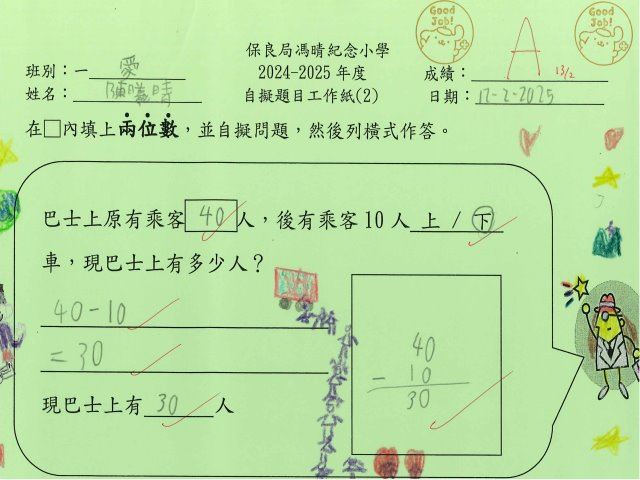 Good Job!
Good Job!
保良局馮晴紀念小學
班別：一 愛
2024-2025 年度
成績： A 13/2
姓名： 陳曦晴
自擬題目工作紙(2)
日期： 12-2-2025
在□內填上兩位數，並自擬問題，然後列橫式作答。
巴士上原有乘客 40 人，後有乘客 10 人 上 / 下
車，現巴士上有多少人？
40-10
= 30
現巴士上有 30 人
40
- 10
30